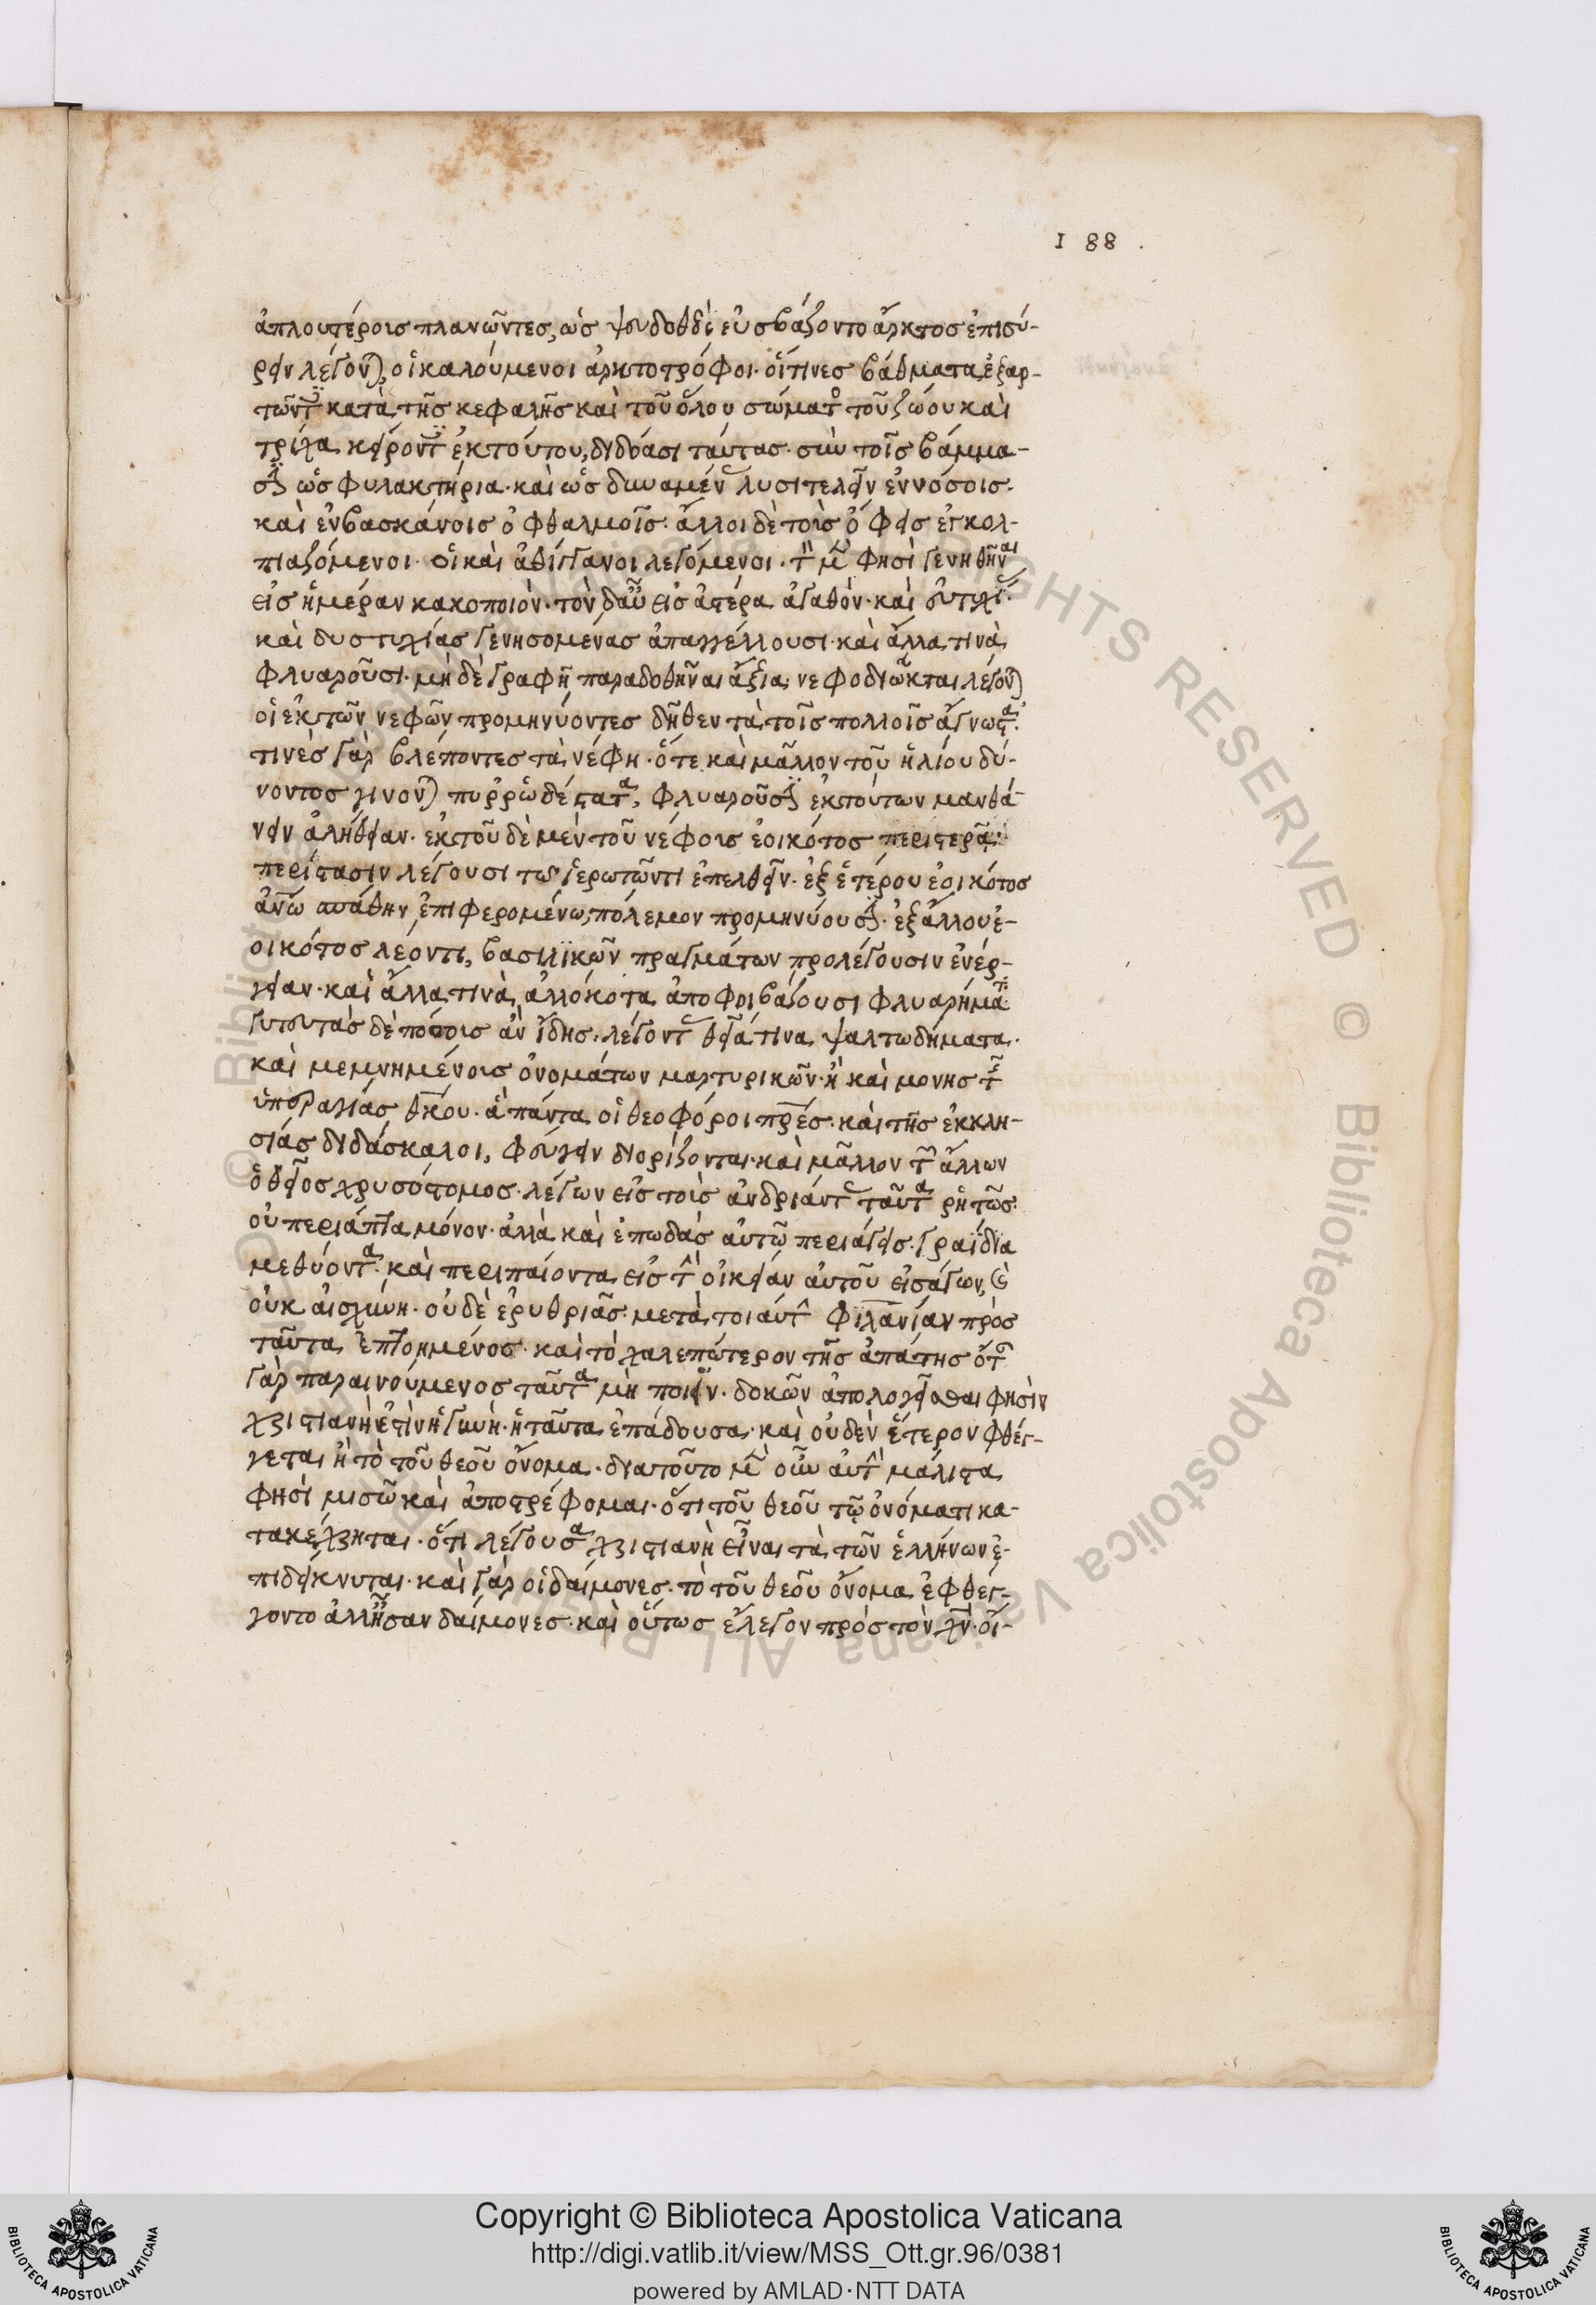 188.
ἁπλουστέροις πλανῶντες, ὡς ψευδοθ
ρειν λέγον), οἱ καλούμενοι ἀρκτοτρόφοι· οἵτινες βάθματα ἐξαρ-
τῶντ κατὰ τῆς κεφαλῆς καὶ τοῦ ὅλου σώματ τοῦ ζώου καὶ
τρίχα κείροντ ἐκ τούτου, διδόασι ταύτας· σὺν τοῖς βάμμα-
σ ὡς φυλακτήρια· καὶ ὡς δυναμέν λυσιτελεῖν ἐν νόσοις·
καὶ ἐν βασκάνοις ὀφθαλμοῖς· ἄλλοι δὲ τοὺς ὄφεις ἐγκολ-
πιαζόμενοι· οἱ καὶ ἀθίγγανοι λεγόμενοι· τ μ φησὶ γενηθῆναι
εἰς ἡμέραν κακοποιόν· τὸν δ αὖ εἰς ἀστέρα ἀγαθόν· καὶ εὐτυχί
καὶ δυστυχίας γενησομένας ἀπαγγέλλουσι· καὶ ἄλλα τινὰ
φλυαροῦσι· μὴ δὲ γραφῇ παραδοθῆναι ἄξια· νεφοδιῶκται λέγον)
οἱ ἐκ τῶν νεφῶν προμηνύοντες δῆθεν τὰ τοῖς πολλοῖς ἄγνωστα·
τινὲς γὰρ βλέποντες τὰ νέφη· ὅτε καὶ μᾶλλον τοῦ ἡλίου δύ-
νοντος γινον) πυρρωδέστατα, φλυαροῦσ ἐκ τούτων μανθά-
νειν ἀλήθειαν· ἐκ τοῦ δὲ μὲν τοῦ νέφους ἐοικότος
περίστασιν λέγουσι τῶ ἐρωτῶντι ἐπελθεῖν· ἐξ ἑτέρου ἐοικότος
ἀνῶ σπάθην ἐπιφερομένω, πόλεμον προμηνύουσ· ἐξ ἄλλου ἐ-
οικότος λέοντι, βασιλικῶν πραγμάτων προλέγουσιν ἐνέρ-
γειαν· καὶ ἄλλα τινὰ ἀλλόκοτα ἀποφοιβάζουσι φλυαρήμα
γητευτὰς δὲ ἂν ἴδης· λέγοντ θεῖά τινα ψαλτωδήματα·
καὶ μεμνημένους ὀνομάτων μαρτυρικῶν· ἢ καὶ μόνης τ
ὑπεραγίας θκου· ἃ πάντα οἱ θεοφόροι πρες· καὶ τῆς ἐκκλη-
σίας διδάσκαλοι, φεύγειν διορίζονται· καὶ μᾶλλον τ ἄλλων
ὁ θεῖος χρυσόστομος· λέγων εἰς τοὺς ἀνδριάντ ταῦτα ῥητῶς·
οὐ περίαπτα μόνον· ἀλλὰ καὶ ἐπωδὰς αὐτῶ περιάγεις· γραΐδια
μεθύοντα· καὶ περιπαίοντα εἰς τ οἰκείαν αὐτοῦ εἰσάγων, καὶ
οὐκ αἰσχύνη· οὐδὲ ἐρυθριᾶς· μετὰ τοιαύτ φιλανίαν πρὸς
ταῦτα ἐπτοημένος· καὶ τὸ χαλεπώτερον τῆς ἀπάτης ὅτ
γὰρ παραινούμενος ταῦτα μὴ ποιεῖν· δοκῶν ἀπολογεῖσθαι φησὶν
χριστιανή ἐστὶν ἡ γυνὴ· ἡ ταῦτα ἐπάδουσα· καὶ οὐδὲν ἕτερον φθέγ-
γεται ἢ τὸ τοῦ θεοῦ ὄνομα· διατοῦτο μ οὖν αὐτ μάλιστα
φησὶ μισῶ καὶ ἀποστρέφομαι· ὅτι τοῦ θεοῦ τῷ ὀνόματι κα-
τακέχρηται· ὅτι λέγουσα χριστιανὴ εἶναι τὰ τῶν ἑλλήνων ἐ-
πιδείκνυται· καὶ γὰρ οἱ δαίμονες· τὸ τοῦ θεοῦ ὄνομα ἐφθέγ-
γοντο ἀλλ ἦσαν δαίμονες· καὶ οὕτως ἔλεγον πρὸς τὸν χν· οἴ-
Copyright © Biblioteca Apostolica Vaticana
http://digi.vatlib.it/view/MSS_Ott.gr.96/0381
powered by AMLAD·NTT DATA
BIBLIOTECA APOSTOLICA VATICANA
BIBLIOTECA APOSTOLICA VATICANA